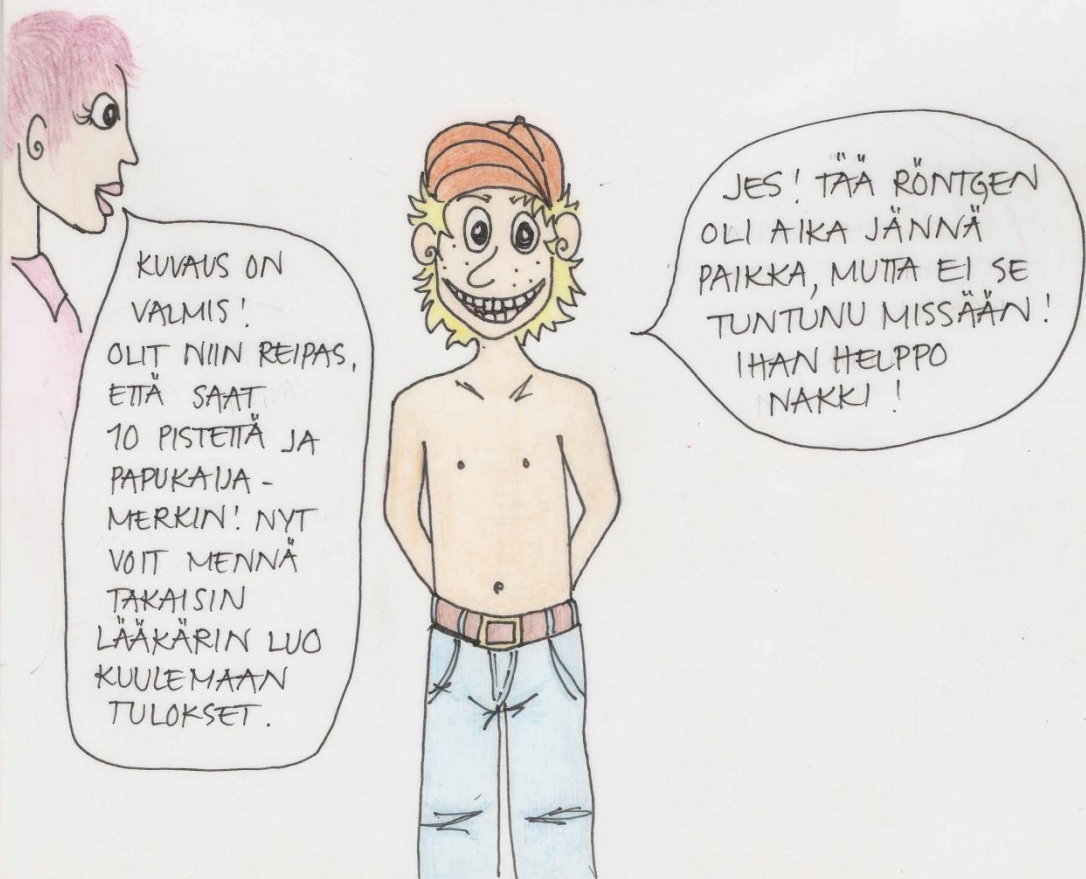 KUVAUS ON
VALMIS!
OLIT NIIN REIPAS,
ETTÄ SAAT
10 PISTETTÄ JA
PAPUKAIJA-
MERKIN! NYT
VOIT MENNÄ
TAKAISIN
LÄÄKÄRIN LUO
KUULEMAAN
TULOKSET.
JES! TÄÄ RÖNTGEN
OLI AIKA JÄNNÄ
PAIKKA, MUTTA EI SE
TUNTUNU MISSÄÄN!
IHAN HELPPO
NAKKI!